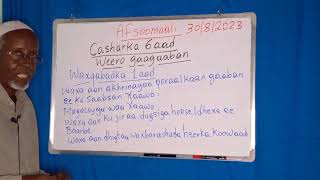 Afsoomaali 30/8/2023
Casharka 6aad
Weero gaagaaban
Waxqabadka 1aad
Waxa aan akhrinayaa qoraalkaan gaaban
ee ku saabsan Xaawo:
Magacaygu waa Xaawo
Waxa aan ku jiraa dugsiga hoose/dhexe ee
Baarbe
Waxa aan dhigtaa waxbarashada heerka koowaad